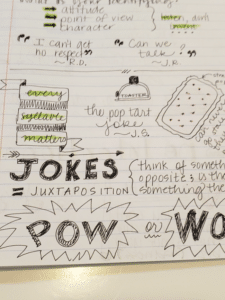 attitude
point of view
character
listen, don't
comment
"I can't get
no respect"
~ R.D.
"Can we
talk?"
~ J.R.
every
syllable
matters
TOASTER
the pop tart
joke
~ J.S.
JOKES
= JUXTAPOSITION
think of someth
opposite & is the
something the
POW or WO